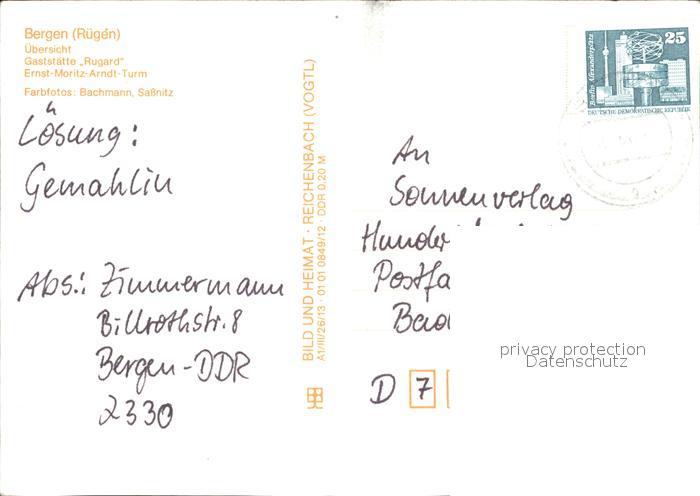 Bergen (Rügen)
Übersicht
Gaststätte „Rugard"
Ernst-Moritz-Arndt-Turm
Farbfotos: Bachmann, Saßnitz
Lösung:
Gemahlin
Abs.: Zimmermann
Billrothstr. 8
Bergen-DDR
2330
BILD UND HEIMAT · REICHENBACH (VOGTL)
A1/III/26/13 · 01 01 0849/12 · DDR 0,20 M
25
Berlin, Alexanderplatz
DEUTSCHE DEMOKRATISCHE REPUBLIK
An
Sonnenverlag
Hunder
Postfa
Bad
D 7
privacy protection
Datenschutz